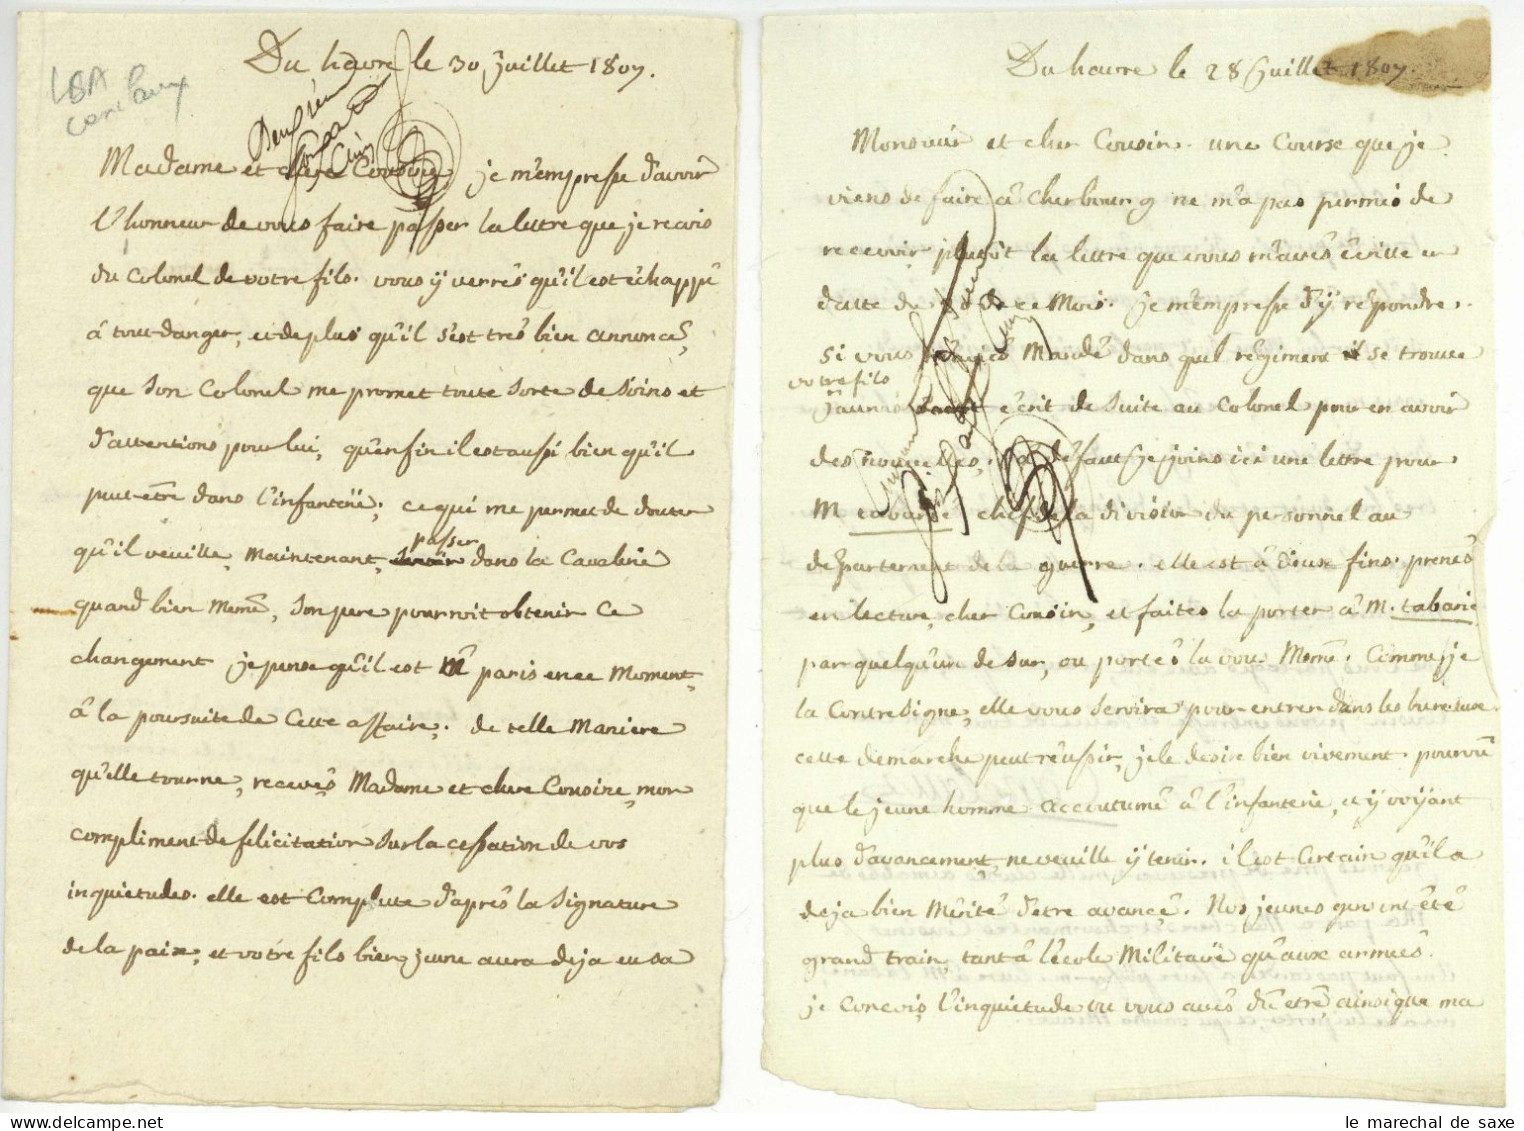 Du havre le 30 Juillet 1807.
LBA
Madame et chere Cousine, je m'empresse d'avoir
l'honneur de vous faire passer la lettre que je recois
du Colonel de votre fils. vous y verrés qu'il est échappé
à tout danger, et de plus qu'il s'est très bien annoncé,
que son Colonel me promet toute sorte de soins et
d'attentions pour lui, qu'enfin il est aussi bien qu'il
peut être dans l'infanterie; ce qui me permet de douter
passer
qu'il veuille, maintenant, servir dans la Cavalerie
quand bien meme, son pere pourroit obtenir ce
changement je pense qu'il est à paris en ce moment,
à la poursuite de cette affaire; de telle maniere
qu'elle tourne, recevés, Madame et chere Cousine, mon
compliment de felicitation sur la cessation de vos
inquietudes. elle est complete d'après la signature
de la paix, et votre fils bien jeune aura deja eu sa
Du havre le 28 Juillet 1807.
Monsieur et cher Cousin. une Course que je
viens de faire à Cherbourg ne m'a pas permis de
recevoir plutôt la lettre que vous m'avés écritte en
datte de de ce mois. je m'empresse d'y répondre.
si vous m'aviés mandé dans quel régiment il se trouve
votre fils
j'aurois écrit de suite au Colonel pour en avoir
des nouvelles, à défaut je joins ici une lettre pour
M chef de la division du personnel au
département de la guerre. elle est à deux fins. prenés
en lecture, cher Cousin, et faites la porter à M. tabarié
par quelqu'un de sur, ou portés la vous meme. Comme je
la Contresigne, elle vous servira pour entrer dans les bureaux.
cette demarche peut réussir, je le desire bien vivement pourvu
que le jeune homme accoutumé à l'infanterie, et y voyant
plus d'avancement, ne veuille y tenir. il est certain qu'il a
deja bien mérité d'etre avancé. Nos jeunes gens ont été
grand train, tant à l'école Militaire qu'aux armées.
je concois l'inquietude ou vous avés dû etre, ainsi que ma
le marechal de saxe